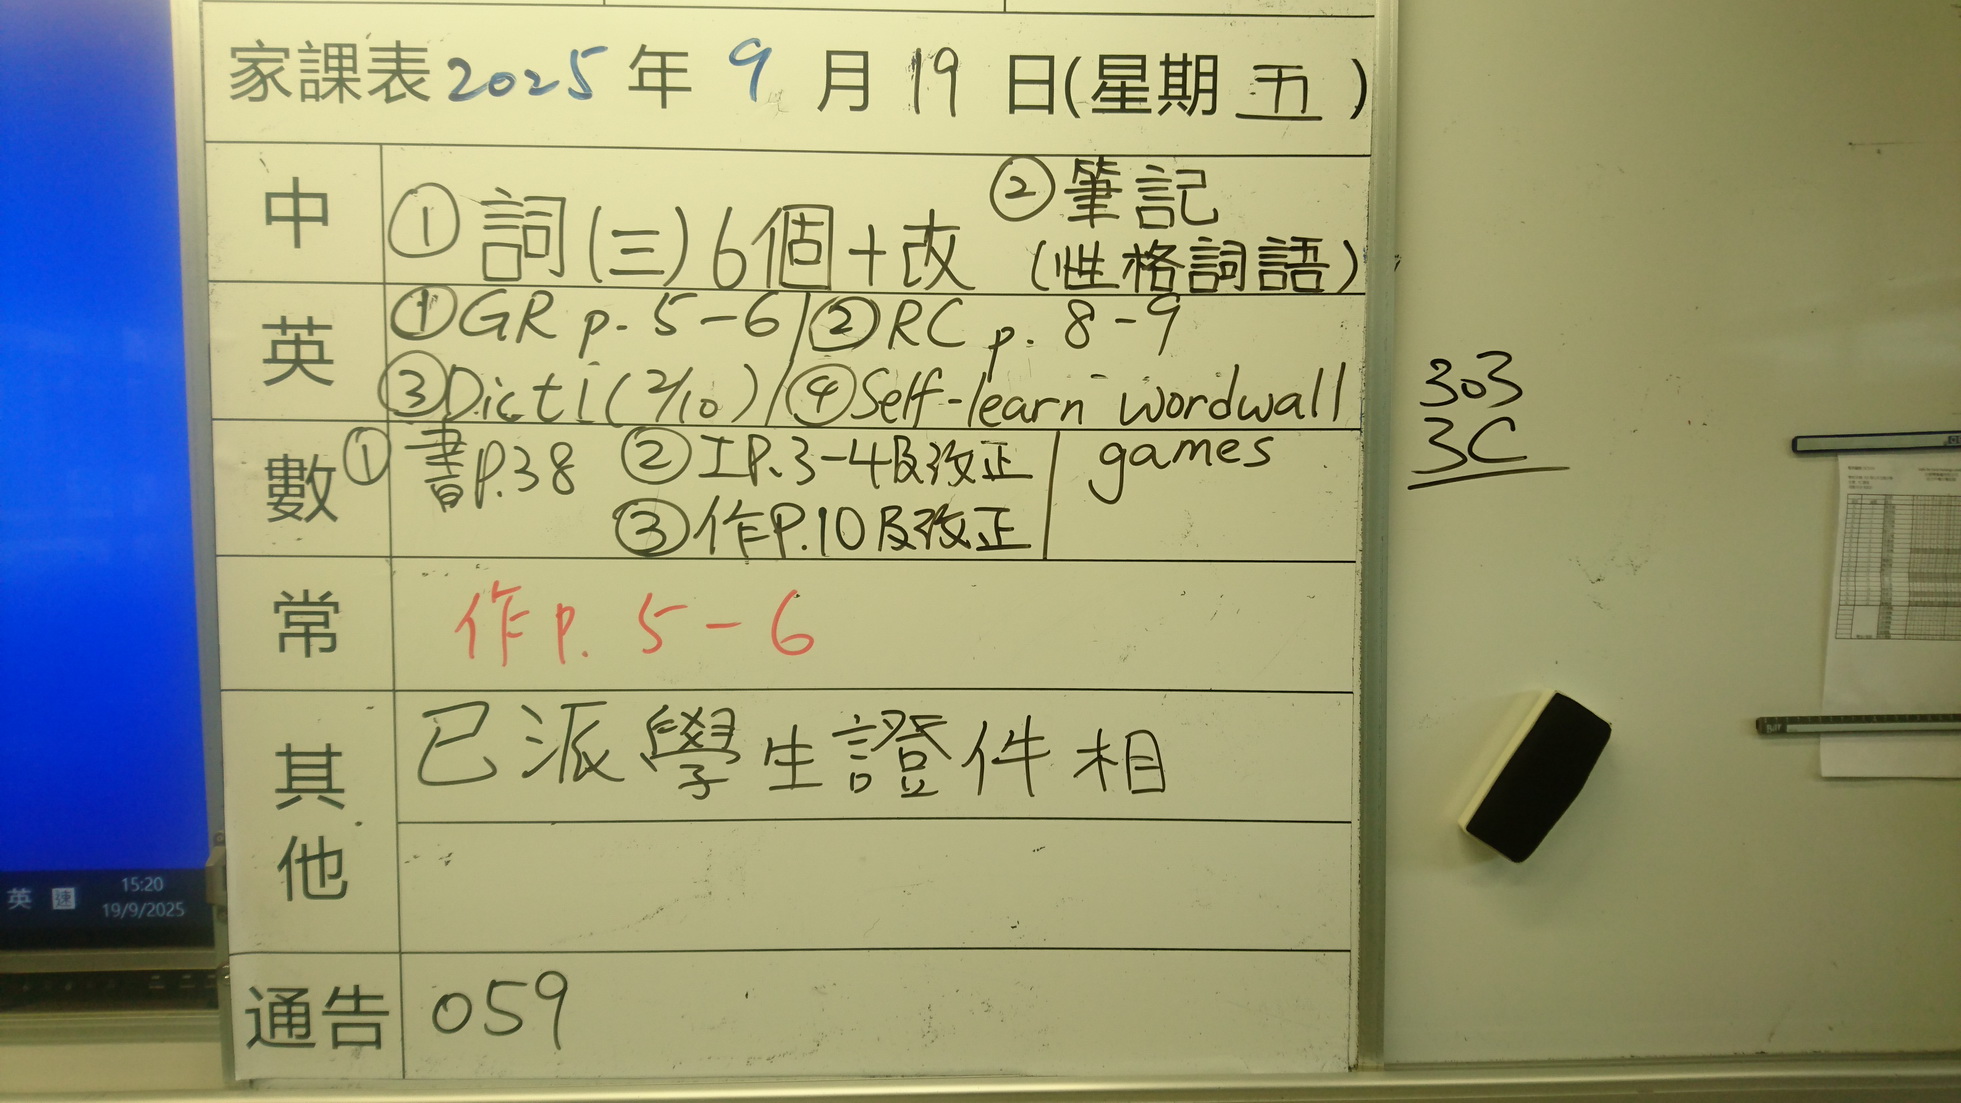 家課表 2025 年 9 月 19 日(星期 五 )
中
① 詞(三)6個+改
② 筆記
(性格詞語)
英
① GR p. 5-6 / ② RC p. 8-9
③ Dict 1 (2/10) / ④ Self-learn wordwall
games
數
① 書P.38 ② 工P.3-4及改正
③ 作P.10及改正
常
作P. 5-6
其他
已派學生證件相
通告
059
303
3C
英 速 15:20
19/9/2025